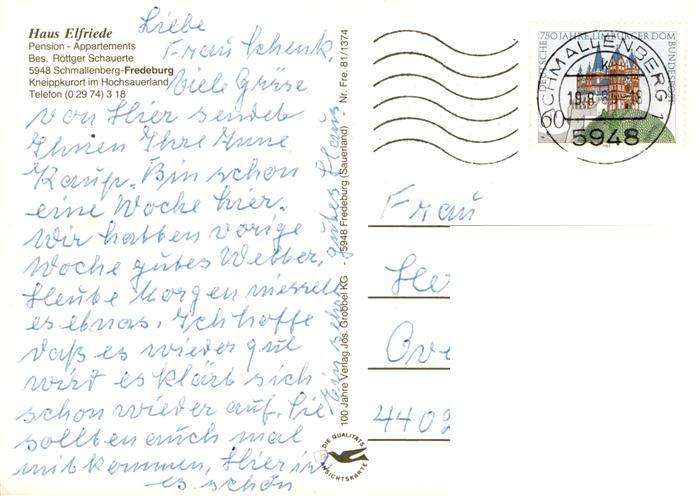 Haus Elfriede
Pension - Appartements
Bes. Röttger Schauerte
5948 Schmallenberg-Fredeburg
Kneippkurort im Hochsauerland
Telefon (0 29 74) 3 18
Liebe
Frau Schenk,
Viele Grüse
von Hier sendet
Ihnen Ihre Anne
Kaup. Bin schon
eine Woche hier.
Wir hatten vorige
Woche gutes Wetter,
Heute Morgen
es etwas. Ich hoffe
daß es wieder gut
wird es klärt sich
schon wieder auf. Sie
sollten auch mal
mitkommen, Hier ist
es schön
Ein sehr gutes Haus
100 Jahre Verlag Jos. Grobbel KG - 5948 Fredeburg (Sauerland) - Nr. Fre. 81/1374
DIE QUALITÄTS
ANSICHTSKARTE
DEUTSCHE BUNDESPOST
750 JAHRE LIMBURGER DOM
60
SCHMALLENBERG 1
5948
Frau
4402